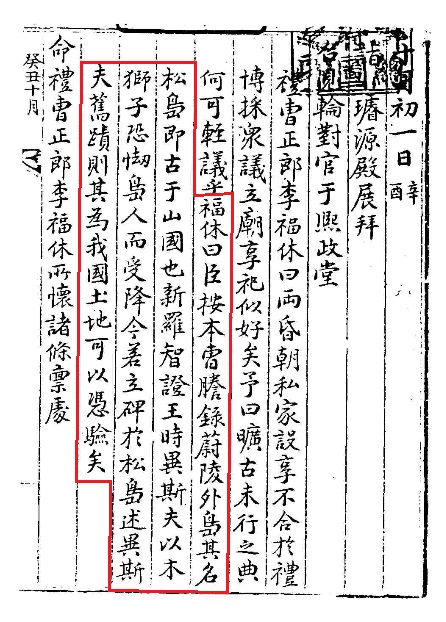 十月初一日辛酉
璿源殿展拜
輪對官于熙政堂
禮曹正郎李福休曰兩昏朝私家設享不合於禮
博採衆議立廟享祀似好矣予曰曠古未行之典
何可輕議乎福休曰臣按本曹謄錄蔚陵外島其名
松島即古于山國也新羅智證王時異斯夫以木
獅子恐㤼島人而受降今若立碑於松島述異斯
夫舊蹟則其為我國土地可以憑驗矣
命禮曹正郎李福休所懷諸條稟處
癸丑十月